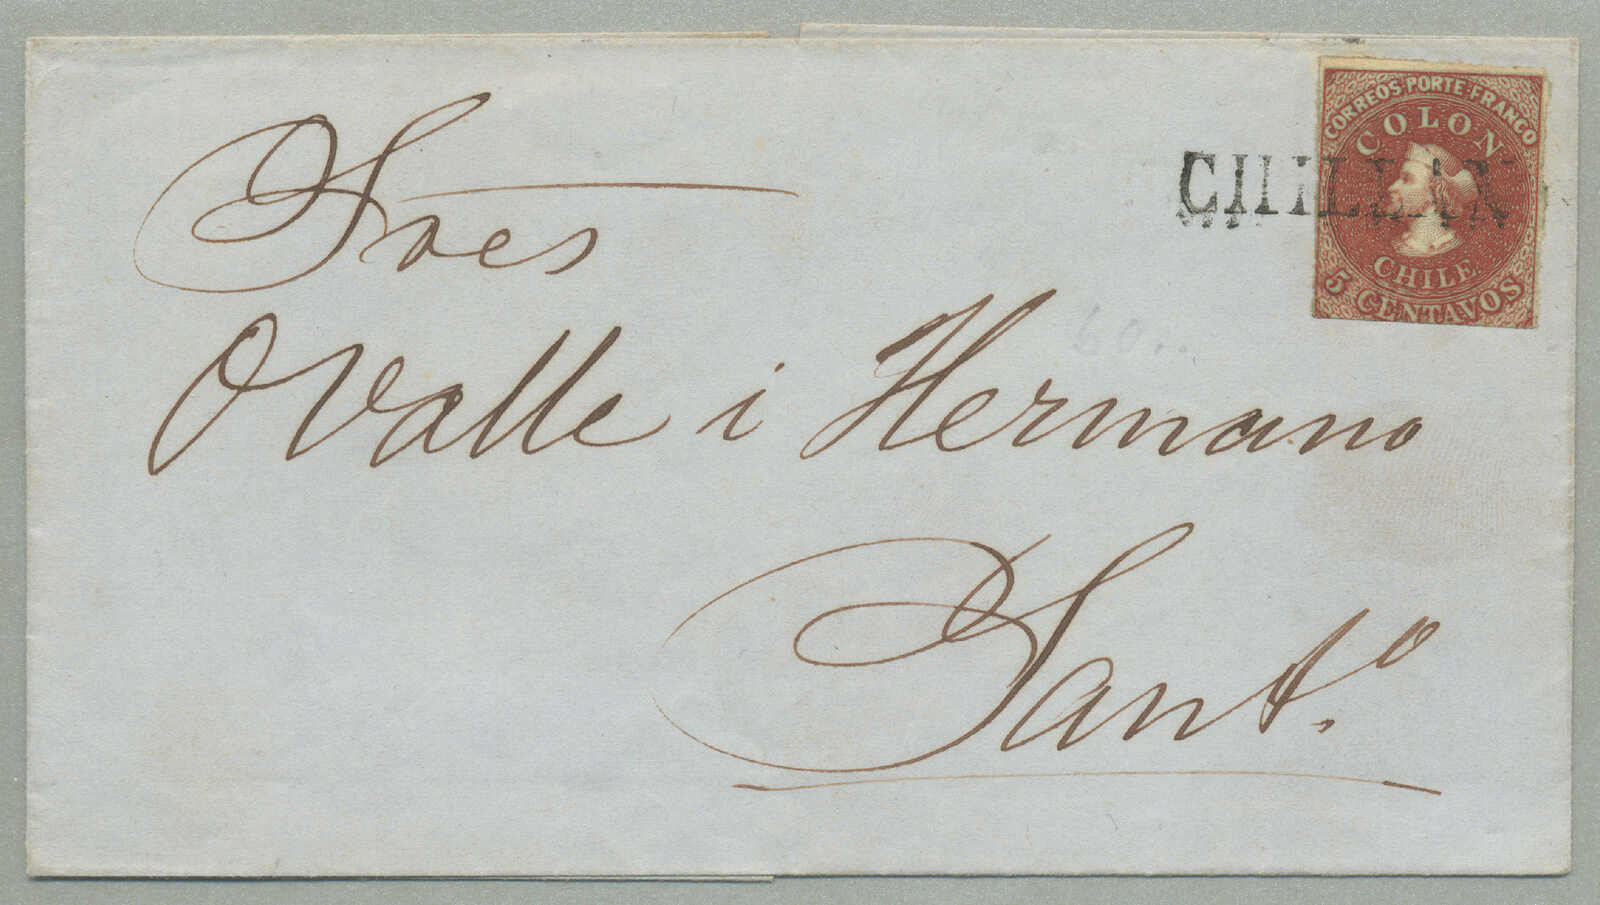 Sres
Ovalle i Hermano
Sant.º
CHILLAN
CORREOS PORTE FRANCO
COLON
CHILE
5 CENTAVOS